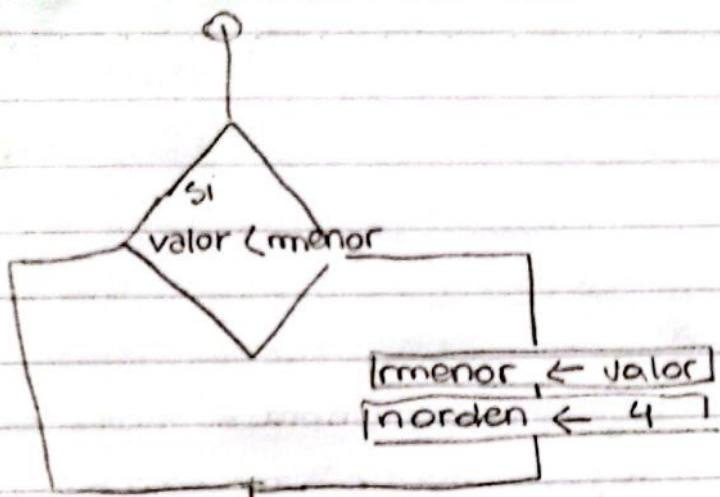 Si
valor < menor
menor ← valor
norden ← 4